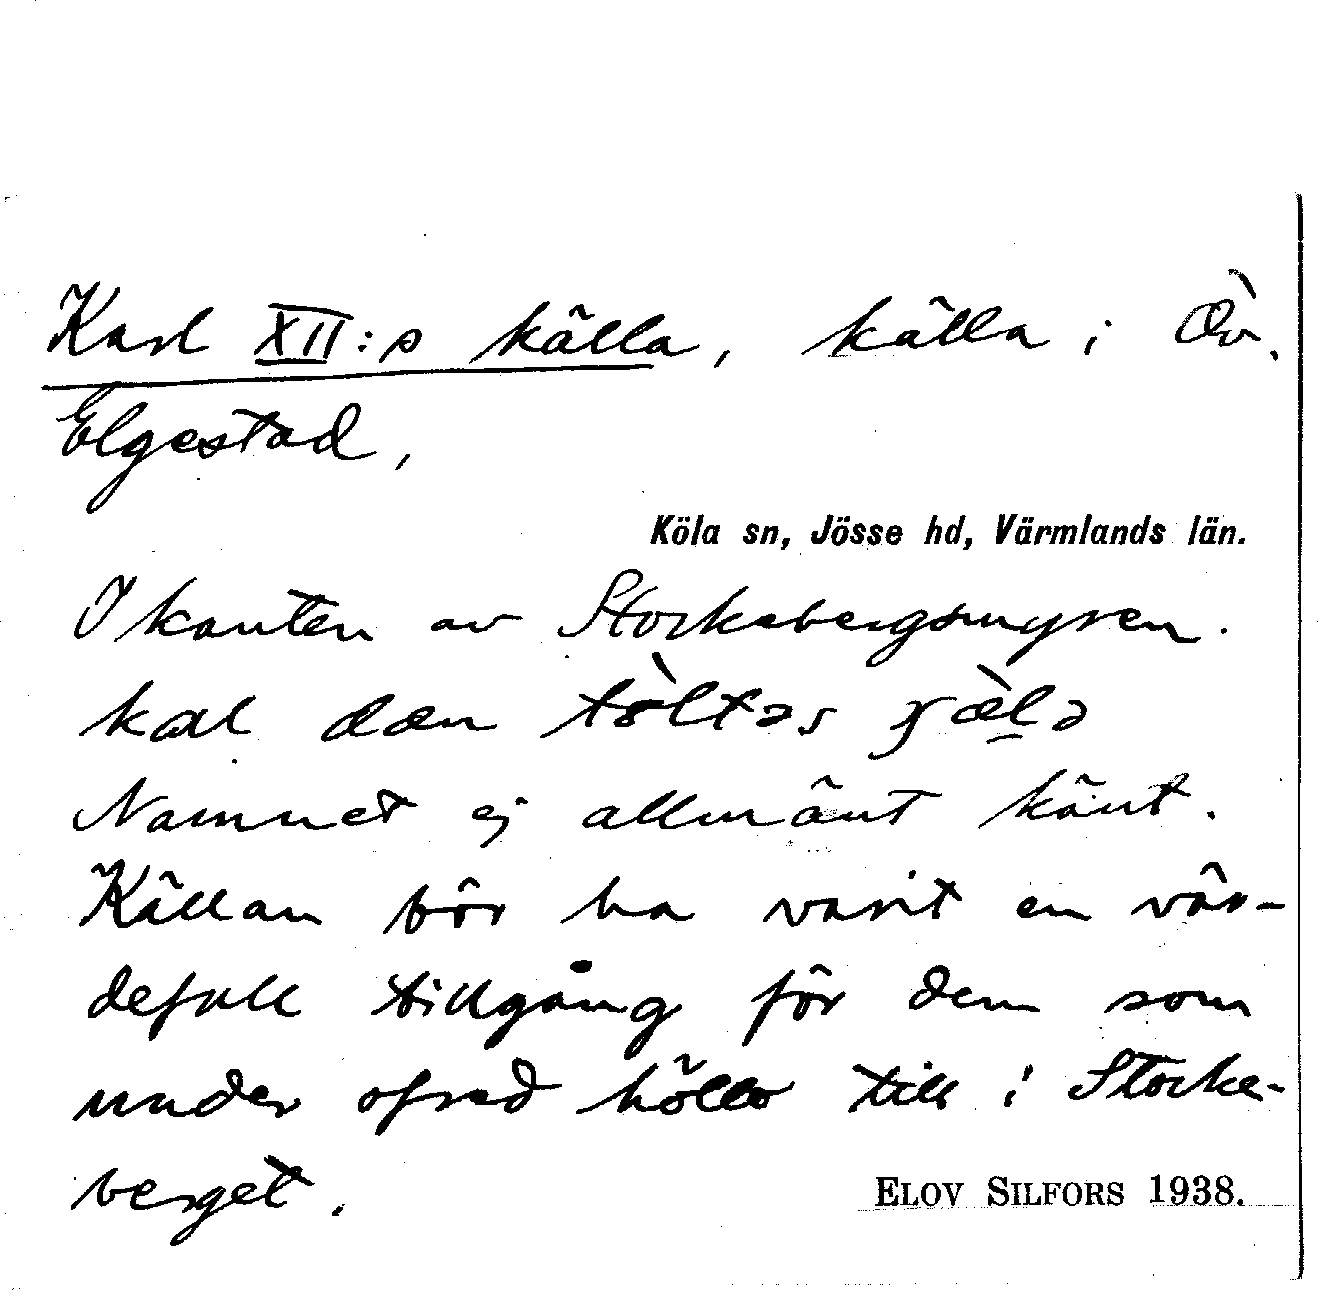 Karl XII:s källa, källa i Öv.
Elgestad,
Köla sn, Jösse hd, Värmlands län.
I kanten av Stockebergsmyren.
kal dæn tòltəs
Namnet ej allmänt känt.
Källan bör ha varit en vär-
defull tillgång för dem som
under ofred höllo till i Stocke-
berget.
ELOV SILFORS 1938.